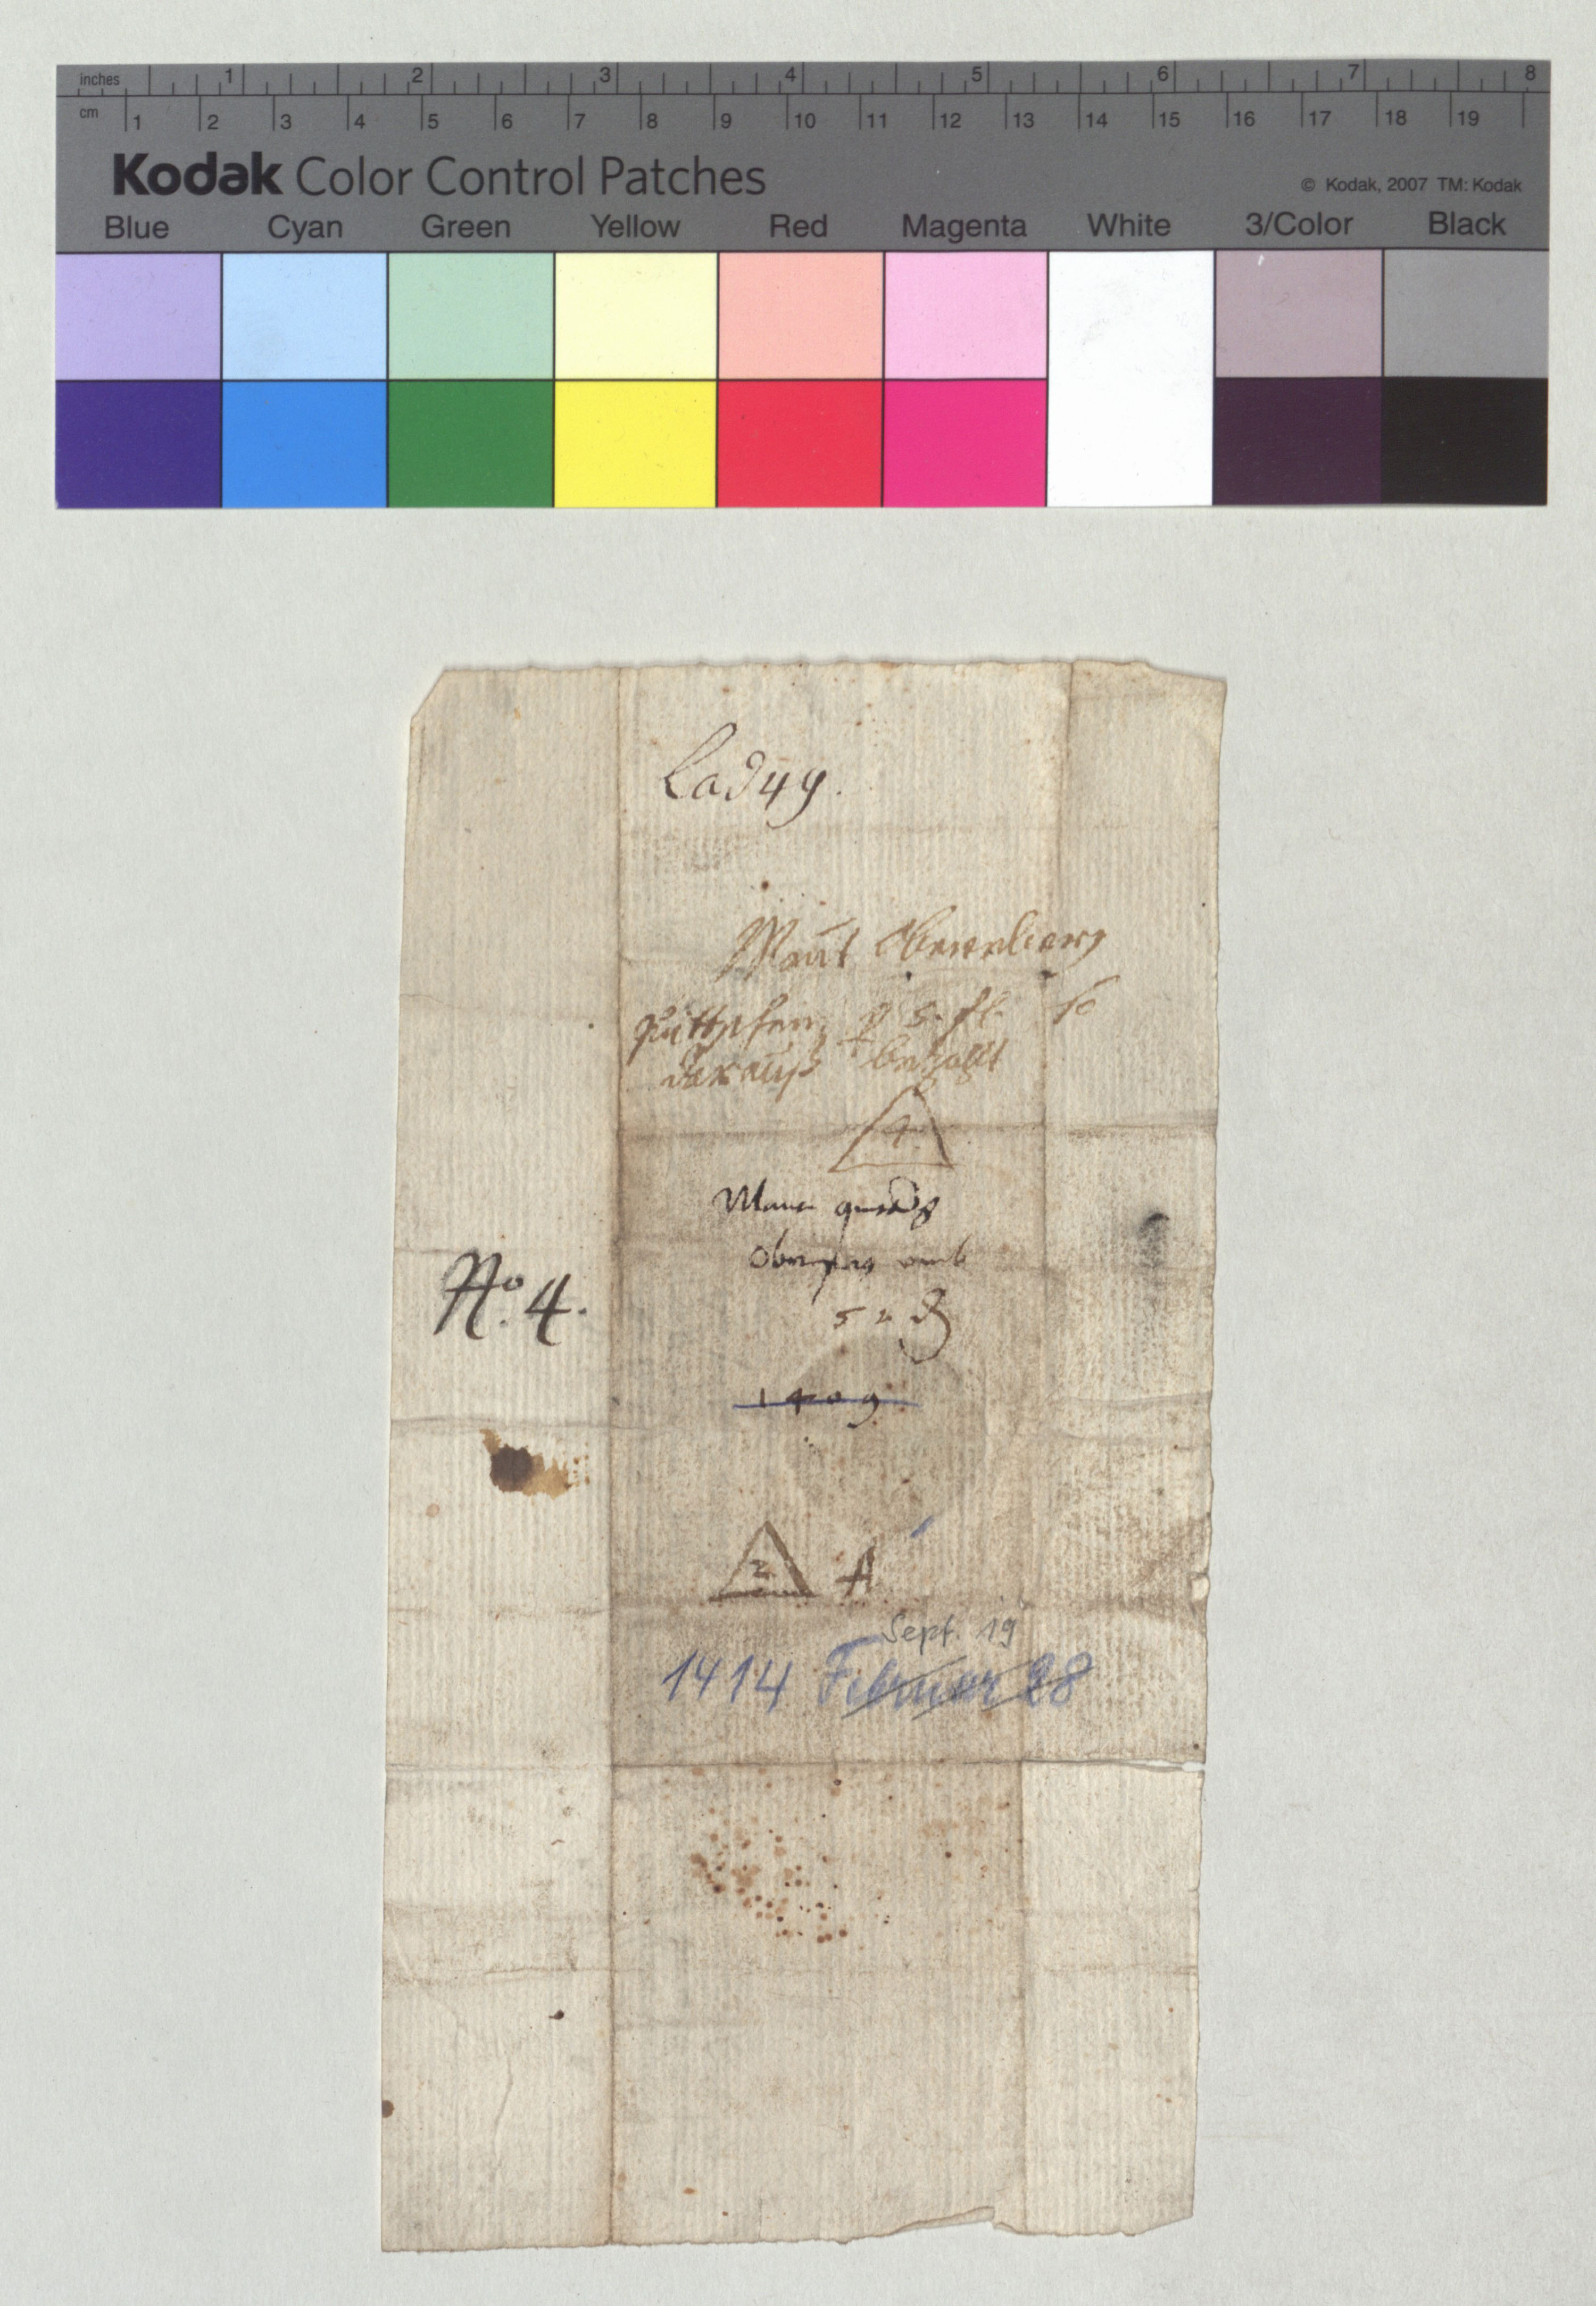 inches 1 2 3 4 5 6 7 8
cm 1 2 3 4 5 6 7 8 9 10 11 12 13 14 15 16 17 18 19
Kodak Color Control Patches
© Kodak, 2007 TM: Kodak
Blue Cyan Green Yellow Red Magenta White 3/Color Black
Lad 49.
Maut Obernberg
darauß bezallt
4
No. 4.
1409
2 A
Sept. 19
1414 Februar 28